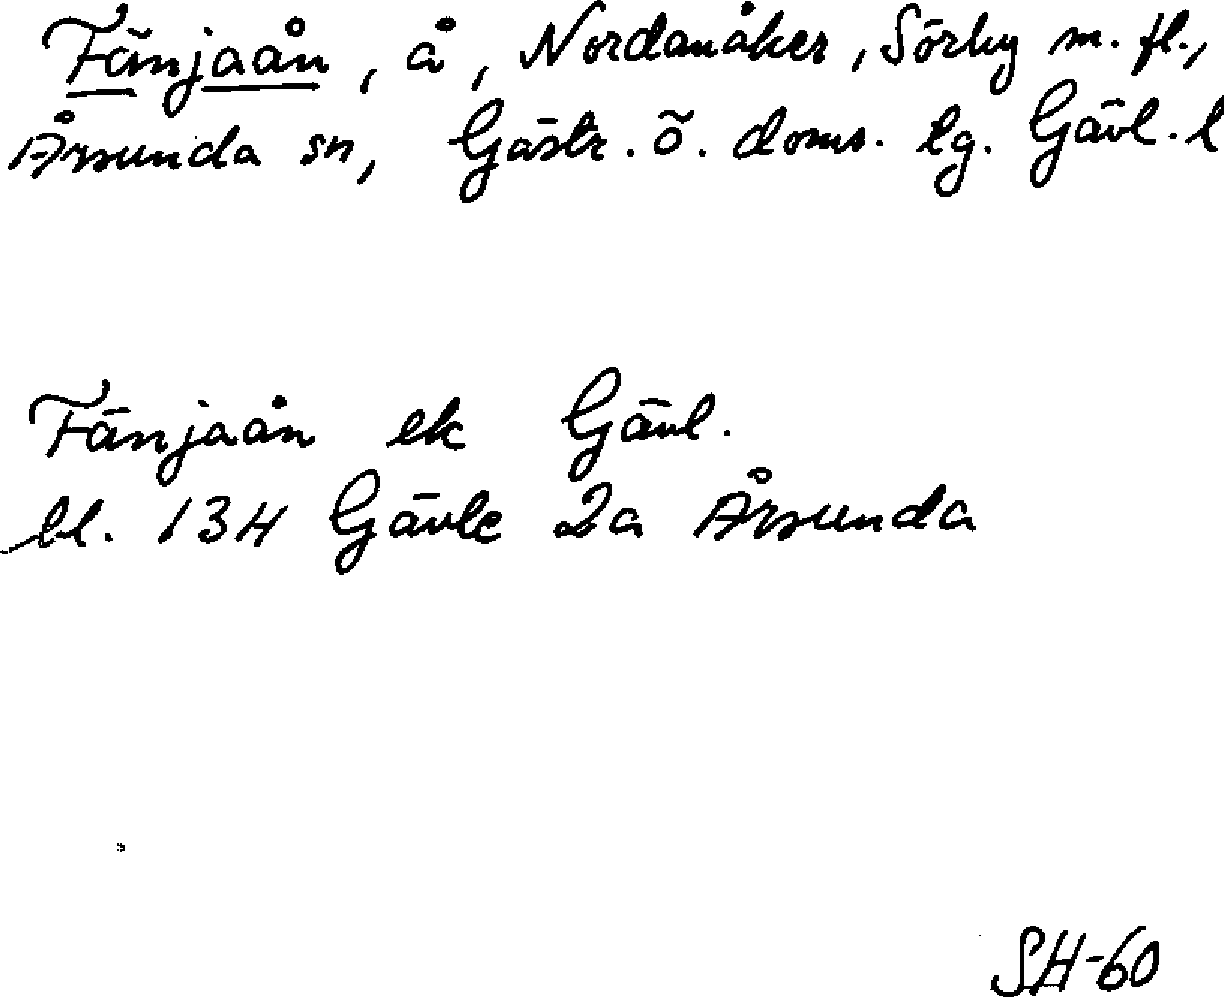 Fänjaån, å, Nordanåker, Sörby m. fl.,
Årsunda sn, Gästr. ö. doms. tg. Gävl. l
Fänjaån ek Gävl.
bl. 13H Gävle 2a Årsunda
SH-60